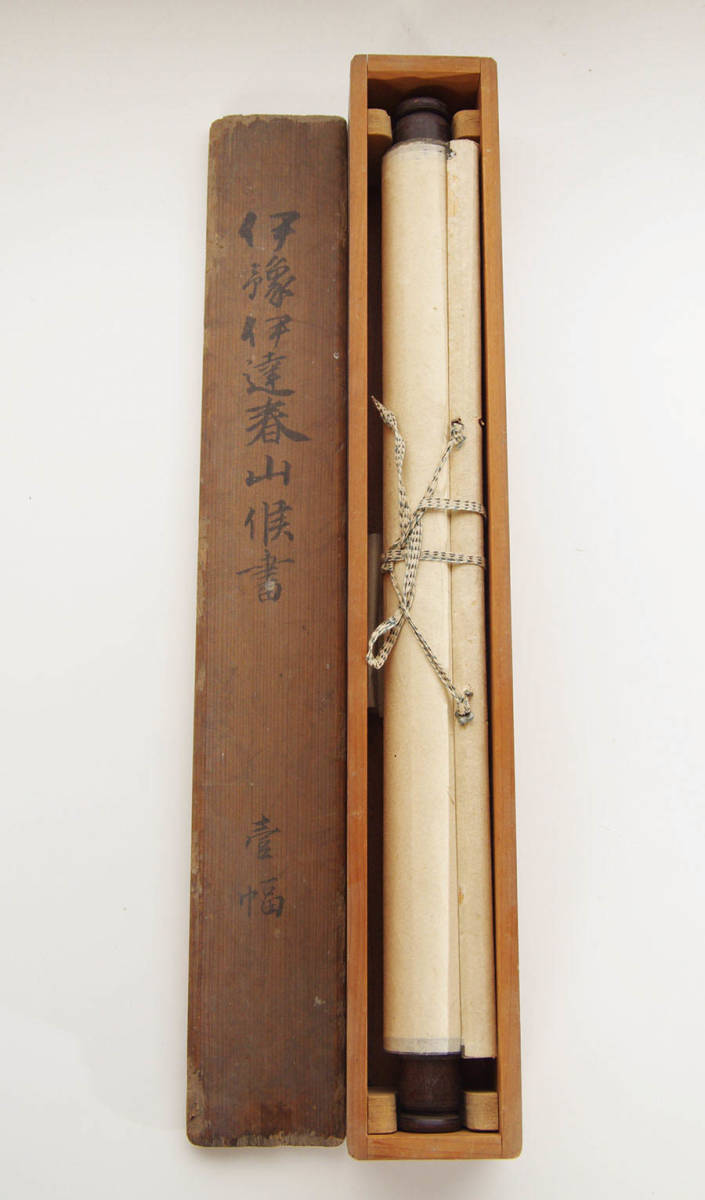 伊豫伊達春山侯書
壹幅